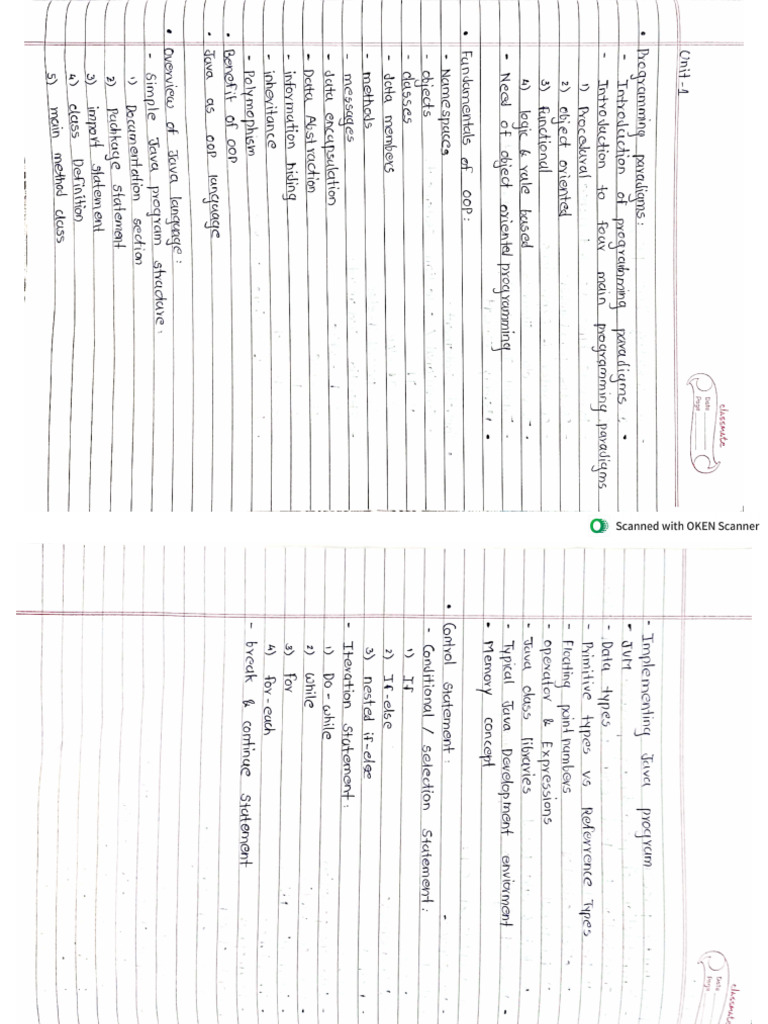 classmate
Date
Page
Unit-1
• Programming paradigms:
- Introduction of programming paradigms
- Introduction to four main programming paradigms
1) Procedural
2) object oriented
3) functional
4) logic & rule based
- Need of object oriented programming
• Fundamentals of OOP:
- Namespaces
- objects
- classes
- data members
- methods
- messages
- data encapsulation
- Data Abstraction
- information hiding
- inheritance
- Polymophism
• Benefit of OOP
• Java as OOP language
• Overview of Java language:
- Simple Java program structure:
1) Documentation section
2) Pachkage statement
3) import statement
4) class Definition
5) main method class
Scanned with OKEN Scanner
classmate
Date
Page
- Implementing Java program
- JVM
- Data types
- Primitive types vs Referrence Types
- Floating point numbers
- operator & Expressions
- Java class libraries
- Typical Java Development enviorment
• Memory concept
• Control statement:
- Conditional / selection Statement:
1) If
2) If-else
3) nested if-else
- Iteration Statement:
1) Do-while
2) while
3) for
4) for-each
- break & continue Statement